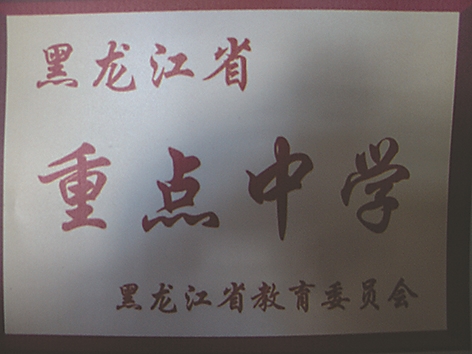 黑龙江省
重点中学
黑龙江省教育委员会